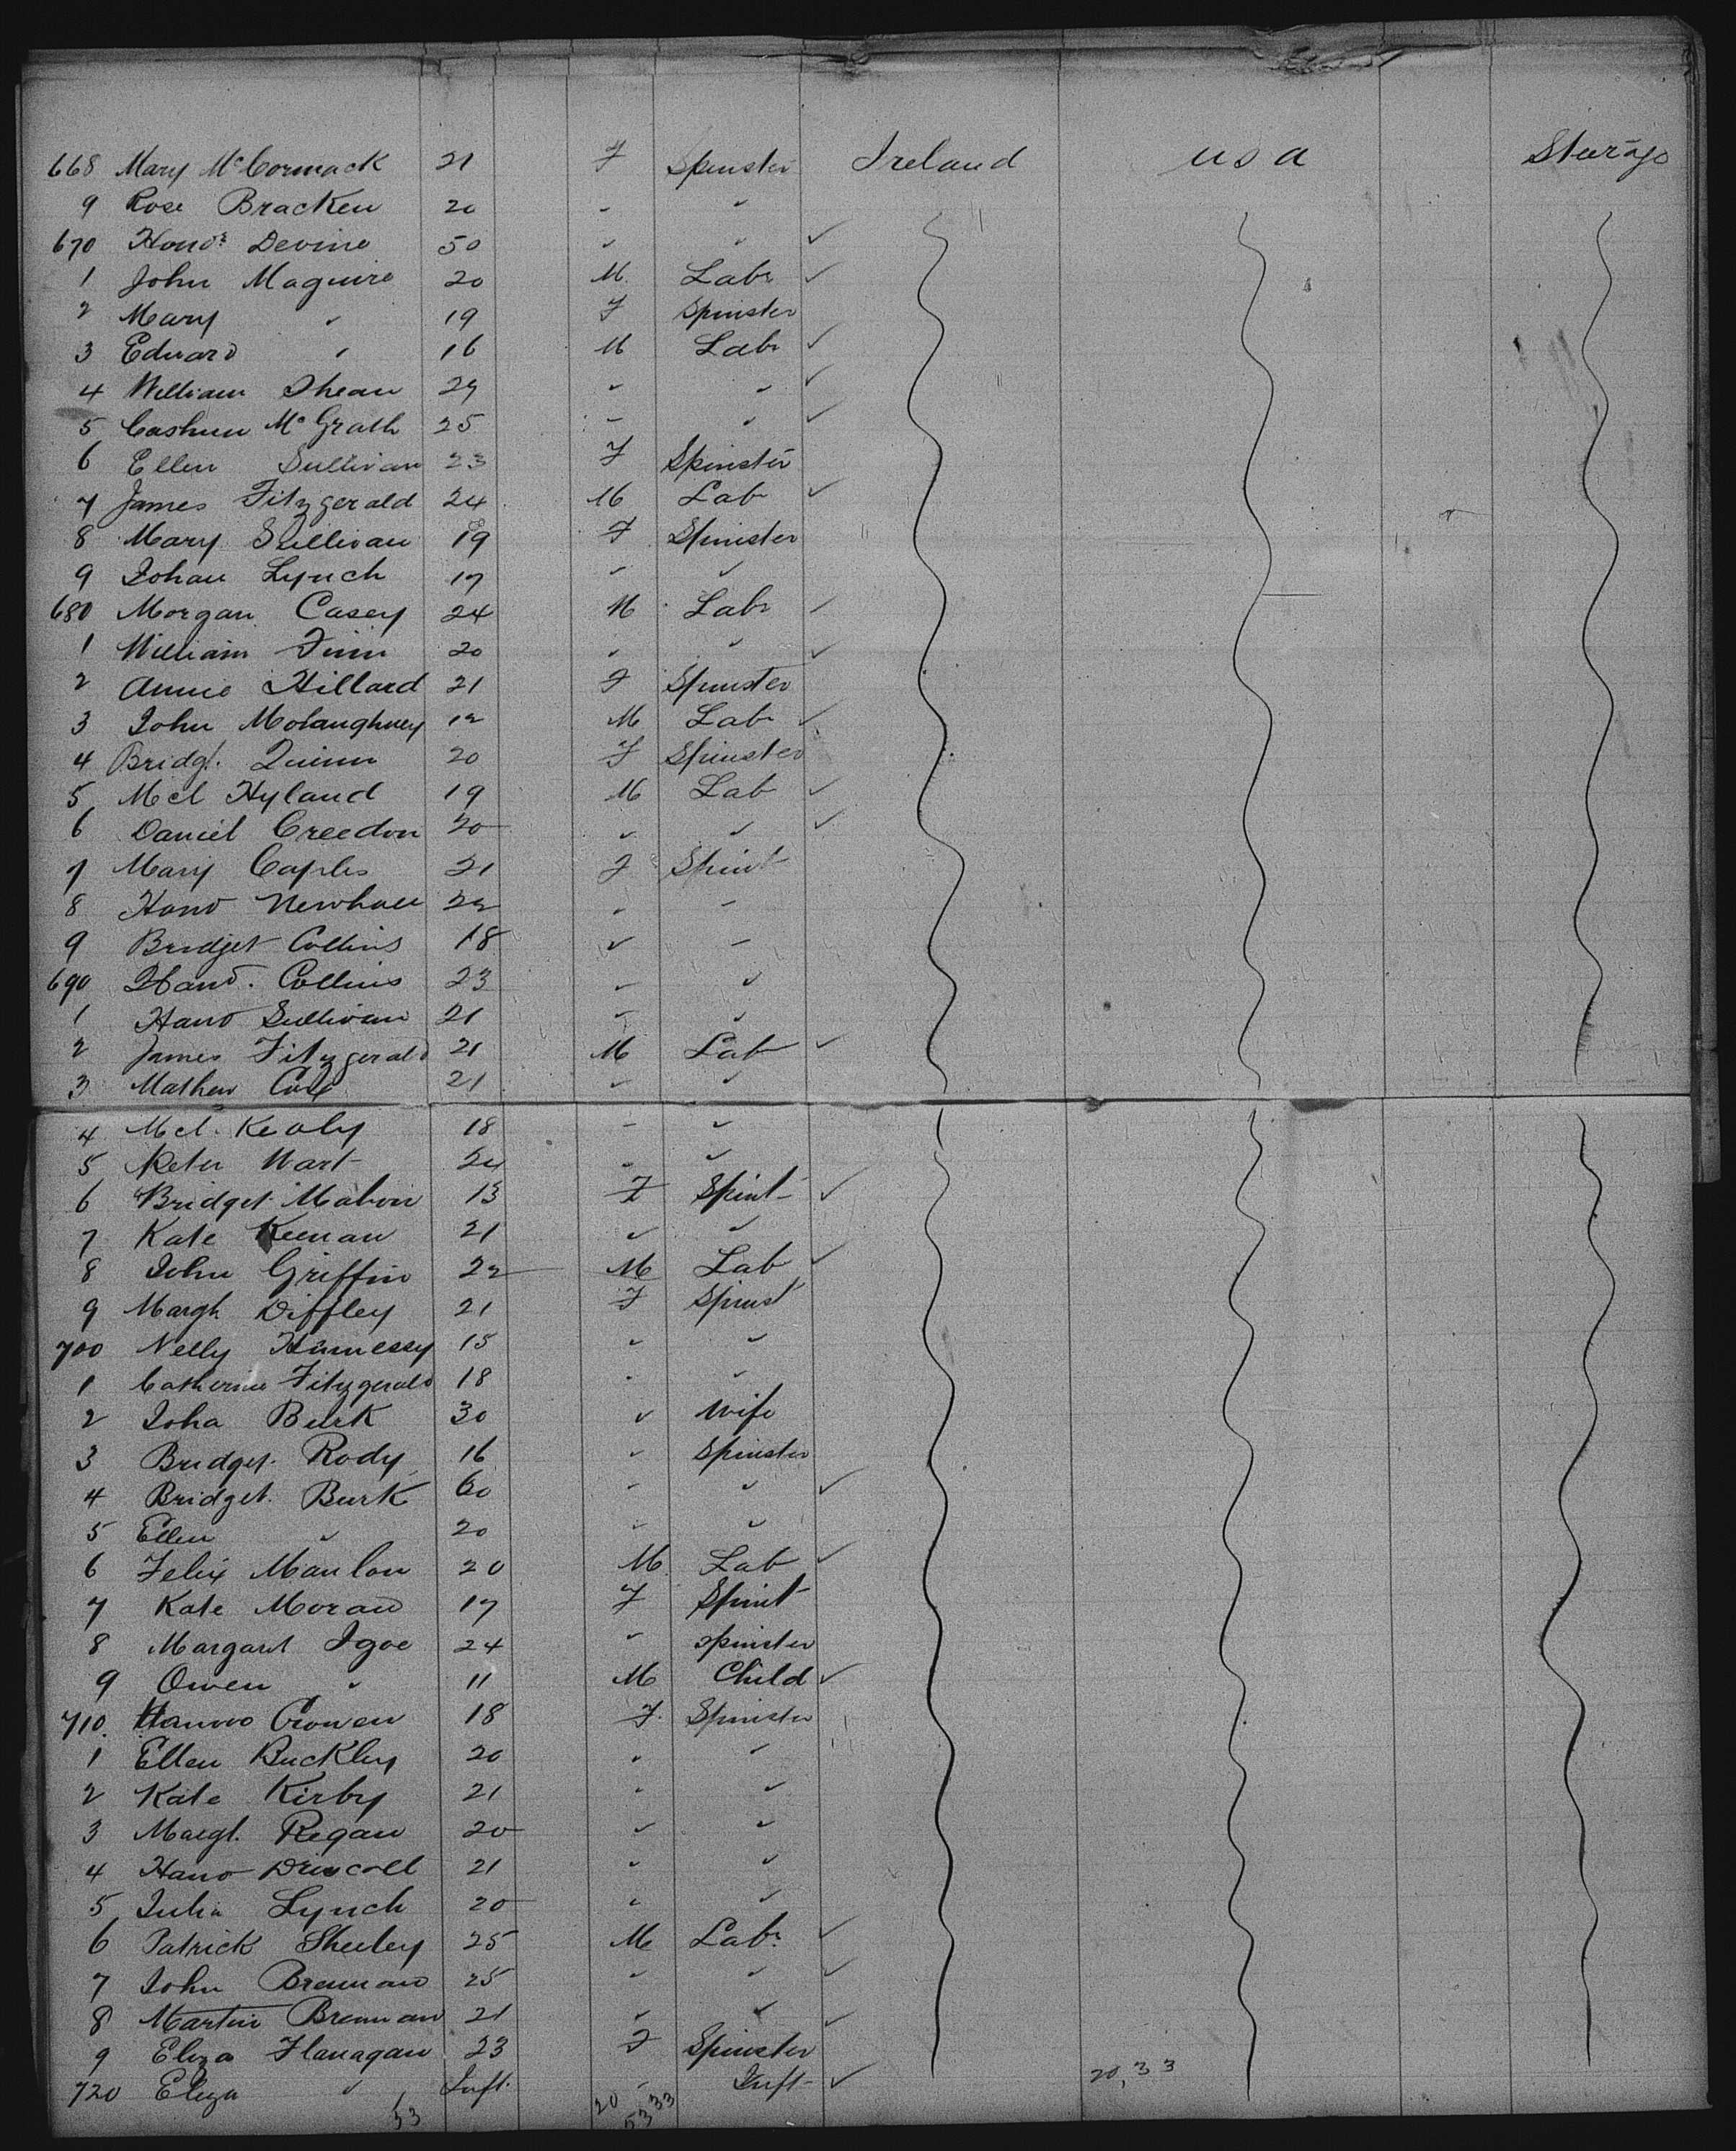 668 Mary McCormack 21 F Spinster Ireland USA Steerage
9 Rose Bracken 20 " "
670 Honor Devine 50 " " ✓
1 John Maguire 20 M Labr ✓
2 Mary " 19 F Spinster
3 Edward " 16 M Labr ✓
4 William Shean 29 " " ✓
5 McGrath 25 " " ✓
6 Ellen Sullivan 23 F Spinster
7 James Fitzgerald 24 M Lab ✓
8 Mary Sullivan 19 F Spinster
9 Johan Lynch 17 " "
680 Morgan Casey 24 M Labr ✓
1 William Finn 20 " " ✓
2 Annie Hillard 21 F Spinster
3 John 12 M Lab ✓
4 Bridgt. Quinn 20 F Spinster
5 Mcl Hyland 19 M Lab ✓
6 Daniel Creedon 20 " " ✓
7 Mary Caples 21 F Spinst
8 Hano 22 " "
9 Bridget Collins 18 " "
690 Hano. Collins 23 " "
1 Hano Sullivan 21 " "
2 James Fitzgerald 21 M Lab ✓
3 Mathew 21 " "
4 Mcl. Kealy 18 " "
5 Peter 24 " "
6 Bridget Mabon 13 F Spinst ✓
7 Kate Keenan 21 " "
8 John Griffin 22 M Lab ✓
9 Margh Diffley 21 F Spinst
700 Nelly Hennessy 15 " "
1 Catherine Fitzgerald 18 " "
2 Joha Burk 30 " Wife
3 Bridget Rody 16 " Spinster
4 Bridget Burk 60 " " ✓
5 Ellen " 20 " "
6 Felix Manlon 20 M Lab ✓
7 Kate Moran 17 F Spinst
8 Margaret Igoe 24 " Spinster
9 Owen " 11 M Child ✓
710 Cronen 18 F Spinster
1 Ellen Buckley 20 " "
2 Kate Kirby 21 " "
3 Margt. Regan 20 " "
4 Hano Driscoll 21 " "
5 Julia Lynch 20 " "
6 Patrick Sheeley 25 M Labr ✓
7 John Brennan 25 " " ✓
8 Martin Brennan 21 " " ✓
9 Eliza Flanagan 23 F Spinster
720 Eliza " Inft. " Inft ✓ 20,33
53 20 33
53